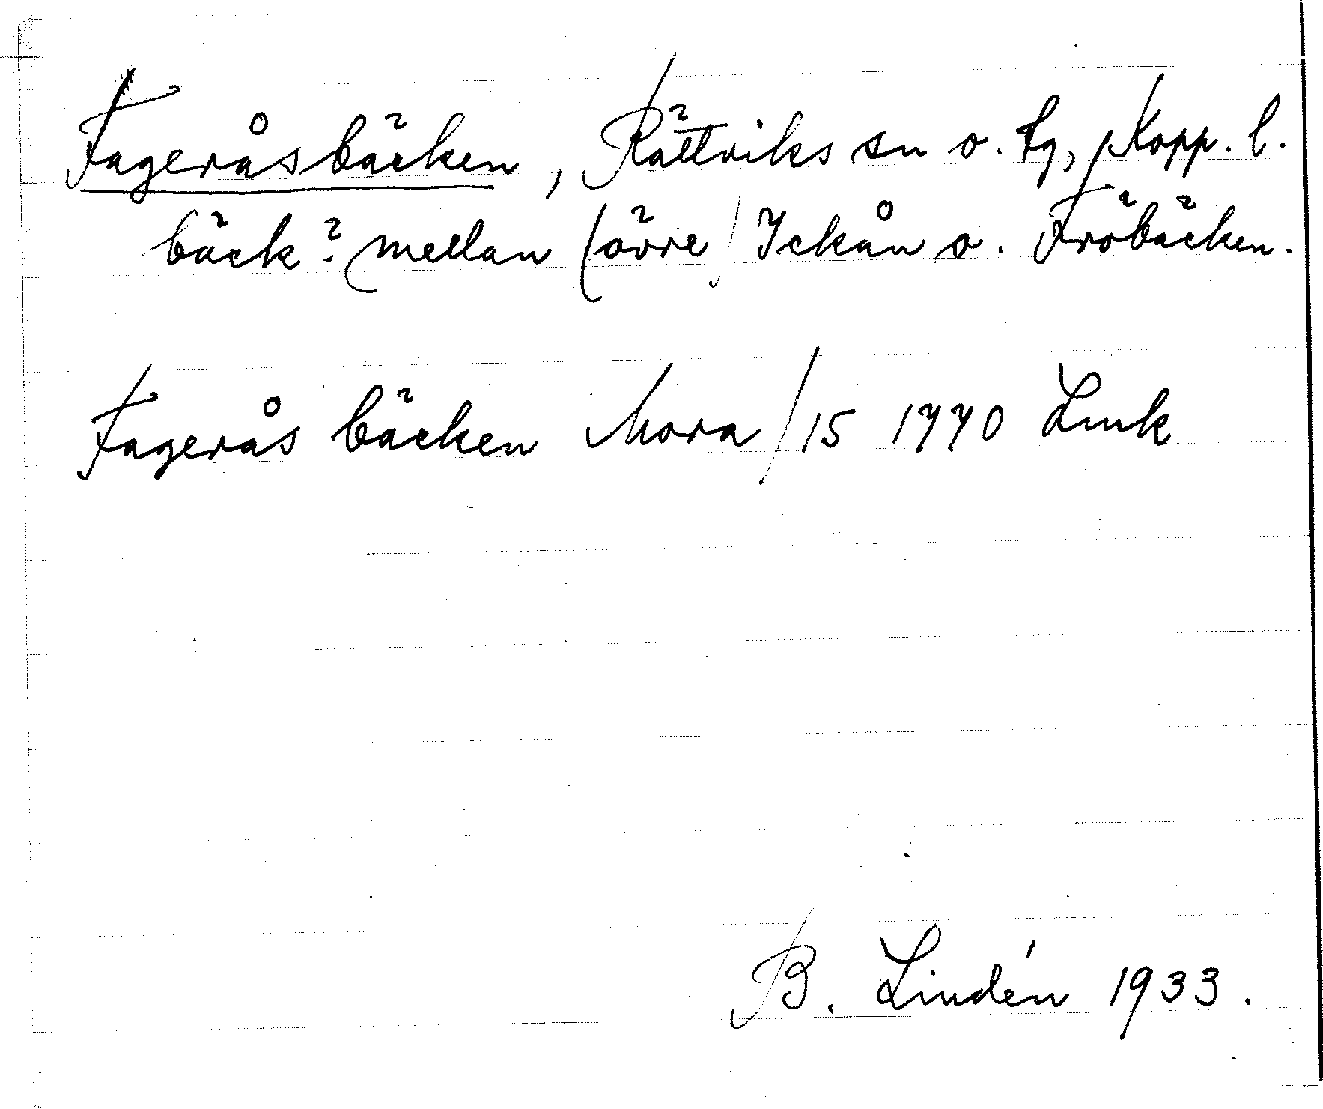 Fageråsbäcken, Rättviks sn o. tg, Kopp. l.
bäck? mellan (övre) Ickån o. Fröbäcken.
Fagerås bäcken Mora /15 1770 Lmk
B. Lindén 1933.